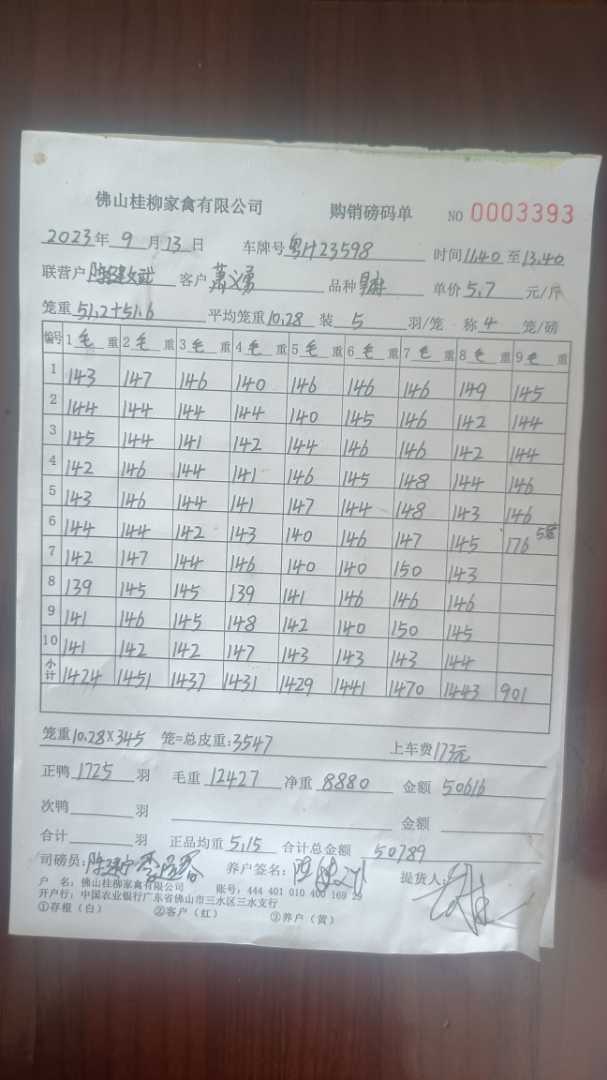 佛山桂柳家禽有限公司 购销磅码单 NO 0003393
2023年 9 月 13 日 车牌号 粤H23598 时间 11.40 至 13.40
联营户 客户 萧义勇 品种 单价 5.7 元/斤
笼重 51.2+51.6 平均笼重 10.28 装 5 羽/笼 称 4 笼/磅
编号 1 毛 重 2 毛 重 3 毛 重 4 毛 重 5 毛 重 6 毛 重 7 毛 重 8 毛 重 9 毛 重
1 143 147 146 140 146 146 146 149 145
2 144 144 144 144 140 145 146 142 144
3 145 144 141 142 144 146 146 142 144
4 142 146 144 141 146 145 148 144 146
5 143 146 144 141 147 144 148 143 146
6 144 144 142 143 140 146 147 145 176 5笼
7 142 147 144 146 140 140 150 143
8 139 145 145 139 141 146 146 146
9 141 146 145 148 142 140 150 145
10 141 142 142 147 143 143 143 144
小计 1424 1451 1437 1431 1429 1441 1470 1443 901
笼重 10.28×345 笼=总皮重: 3547 上车费 173元
正鸭 1725 羽 毛重 12427 净重 8880 金额 50616
次鸭 羽 金额
合计 羽 正品均重 5.15 合计总金额 50789
司磅员: 养户签名: 提货人:
户 名: 佛山桂柳家禽有限公司 账号: 444 401 010 400 169 29
开户行: 中国农业银行广东省佛山市三水区三水支行
①存根(白) ②客户(红) ③养户(黄)